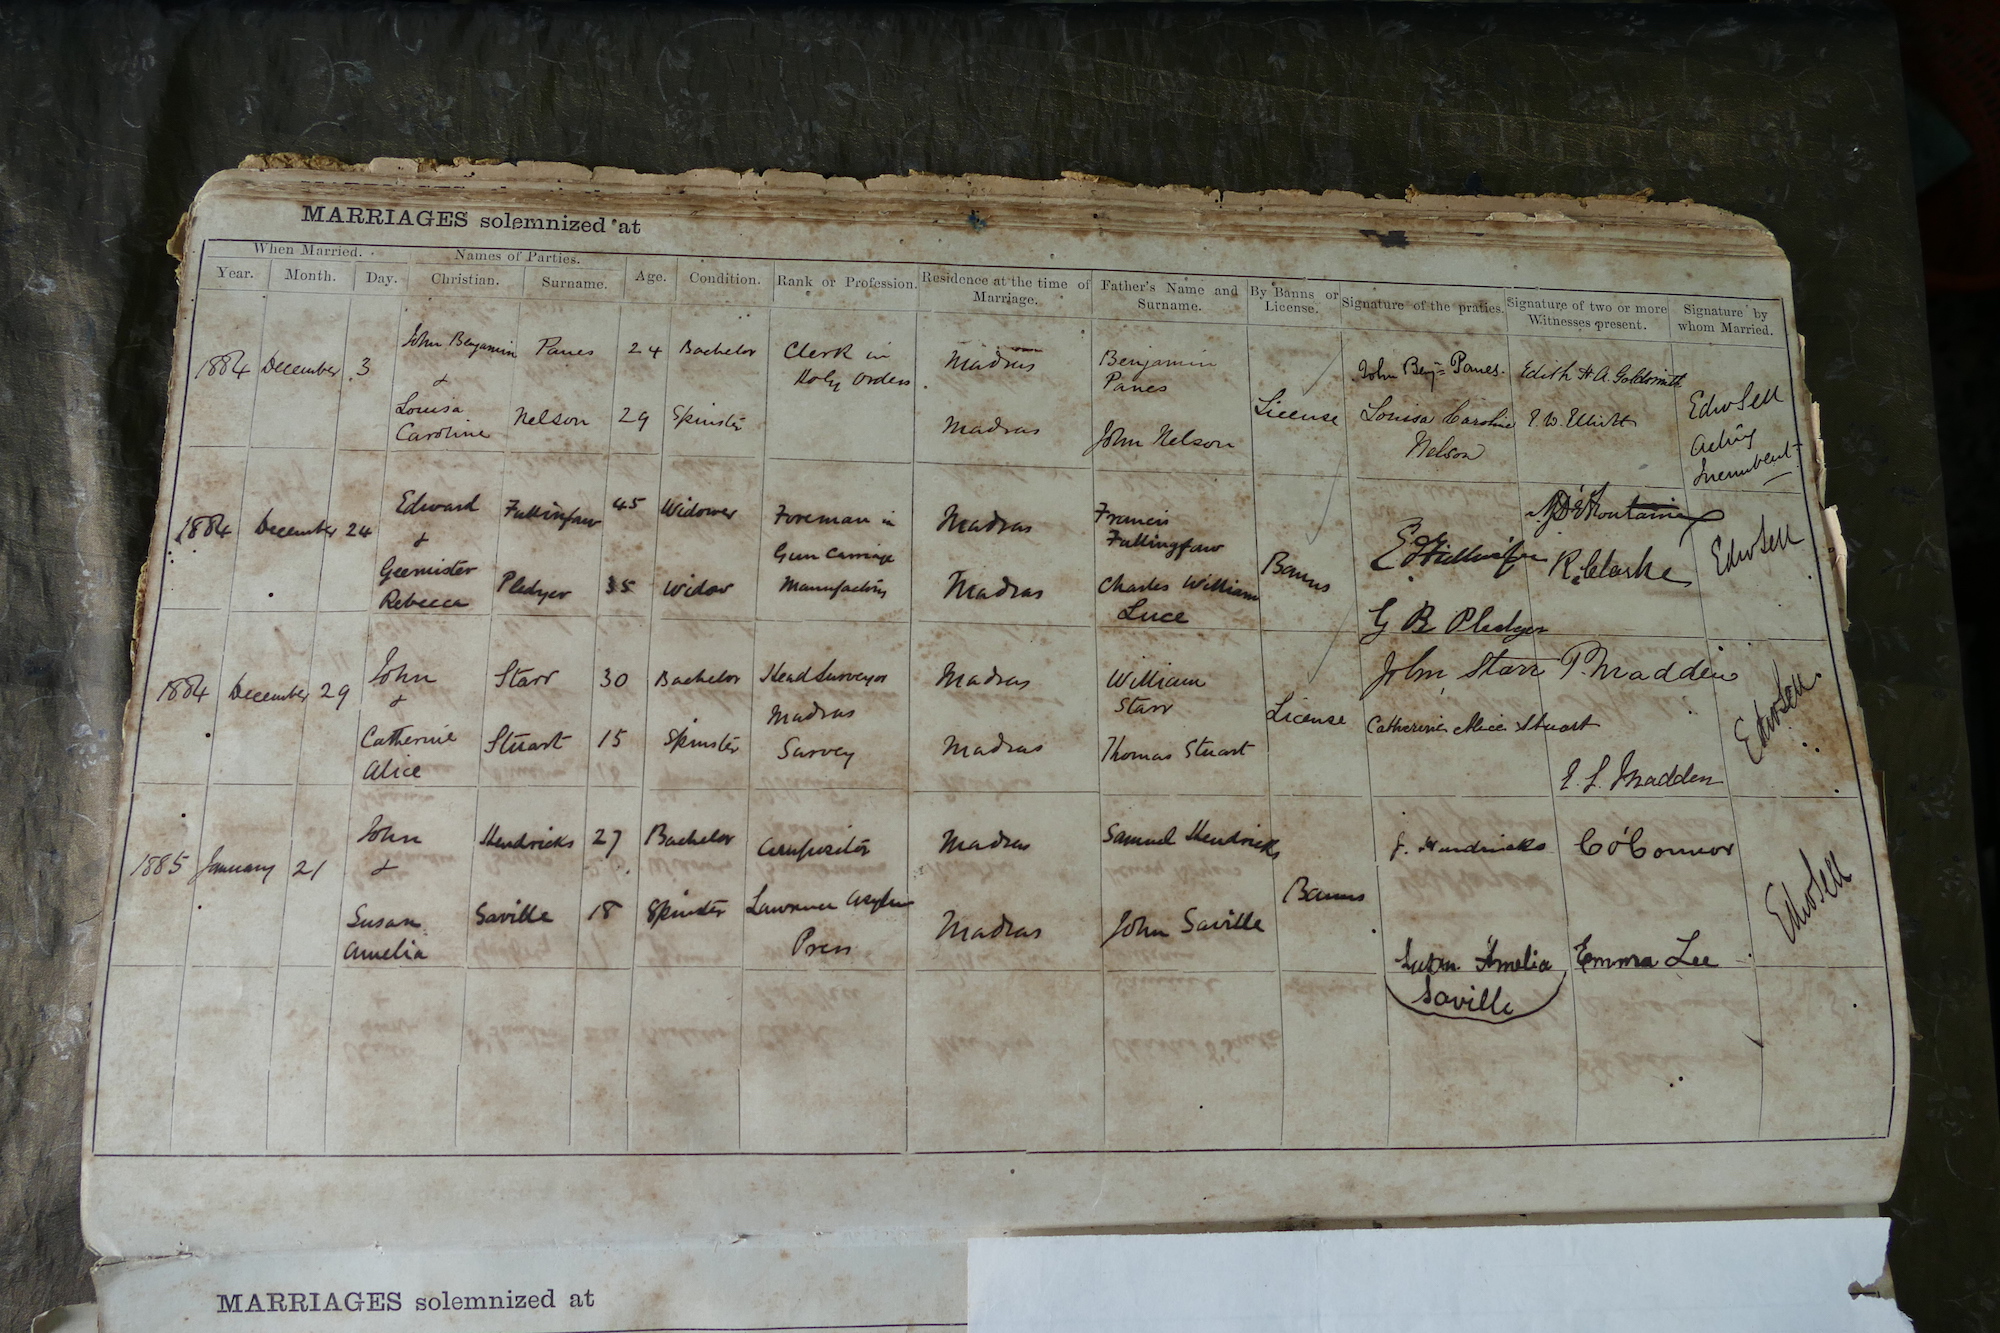 MARRIAGES solemnized at
When Married. Names of Parties. Age. Condition. Rank or Profession. Residence at the time of Marriage. Father's Name and Surname. By Banns or License. Signature of the praties. Signature of two or more Witnesses present. Signature by whom Married.
Year. Month. Day. Christian. Surname.
1884 December 3 John Benjamin Panes 24 Bachelor Clerk in Madras Benjamin John Benj= Panes. Edith H A. Goldsmith
& Holy Orders. Panes
Louisa Nelson 29 Spinster License Louisa Caroline Edwd Sell
Caroline Madras John Nelson Nelson Acting
Incumbent
1884 December 24 Edward 45 Widower Foreman in Madras Francis
& Gun Carriage Fullingfaw
Rebecca Pledger 35 Widow Manufactory Madras Charles William Banns R. Clarke Edwd Sell
Luce G B Pledger
1884 December 29 John Starr 30 Bachelor Head Surveyor Madras William John Starr P. Madden
& Madras Starr
Catherine Stuart 15 Spinster Survey Madras Thomas Stuart License Catherine Alice Stuart Edwd Sell
Alice E. L. Madden
1885 January 21 John Hendricks 27 Bachelor Compositor Madras Samuel Hendricks J. Hendricks C O'Connor
&
Susan Saville 18 Spinster Lawrence Asylum Madras John Saville Banns Edwd Sell
Amelia Press Susan Amelia Emma Lee
Saville
MARRIAGES solemnized at